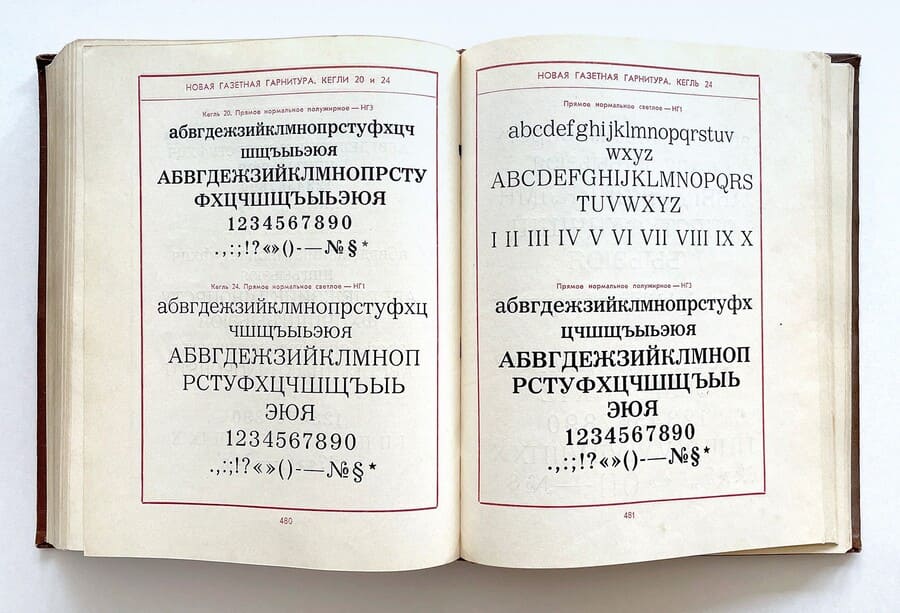 НОВАЯ ГАЗЕТНАЯ ГАРНИТУРА. КЕГЛИ 20 и 24
Кегль 20. Прямое нормальное полужирное — НГ3
абвгдежзийклмнопрстуфхцч
шщъыьэюя
АБВГДЕЖЗИЙКЛМНОПРСТУ
ФХЦЧШЩЪЫЬЭЮЯ
1234567890
.,:;!?«»()-—№§*
Кегль 24. Прямое нормальное светлое — НГ1
абвгдежзийклмнопрстуфхц
чшщъыьэюя
АБВГДЕЖЗИЙКЛМНОП
РСТУФХЦЧШЩЪЫЬ
ЭЮЯ
1234567890
.,:;!?«»()-—№§*
480
НОВАЯ ГАЗЕТНАЯ ГАРНИТУРА. КЕГЛЬ 24
Прямое нормальное светлое — НГ1
abcdefghijklmnopqrstuv
wxyz
ABCDEFGHIJKLMNOPQRS
TUVWXYZ
I II III IV V VI VII VIII IX X
Прямое нормальное полужирное — НГ3
абвгдежзийклмнопрстуфх
цчшщъыьэюя
АБВГДЕЖЗИЙКЛМНОП
РСТУФХЦЧШЩЪЫЬ
ЭЮЯ
1234567890
.,:;!?«»()-—№§*
481